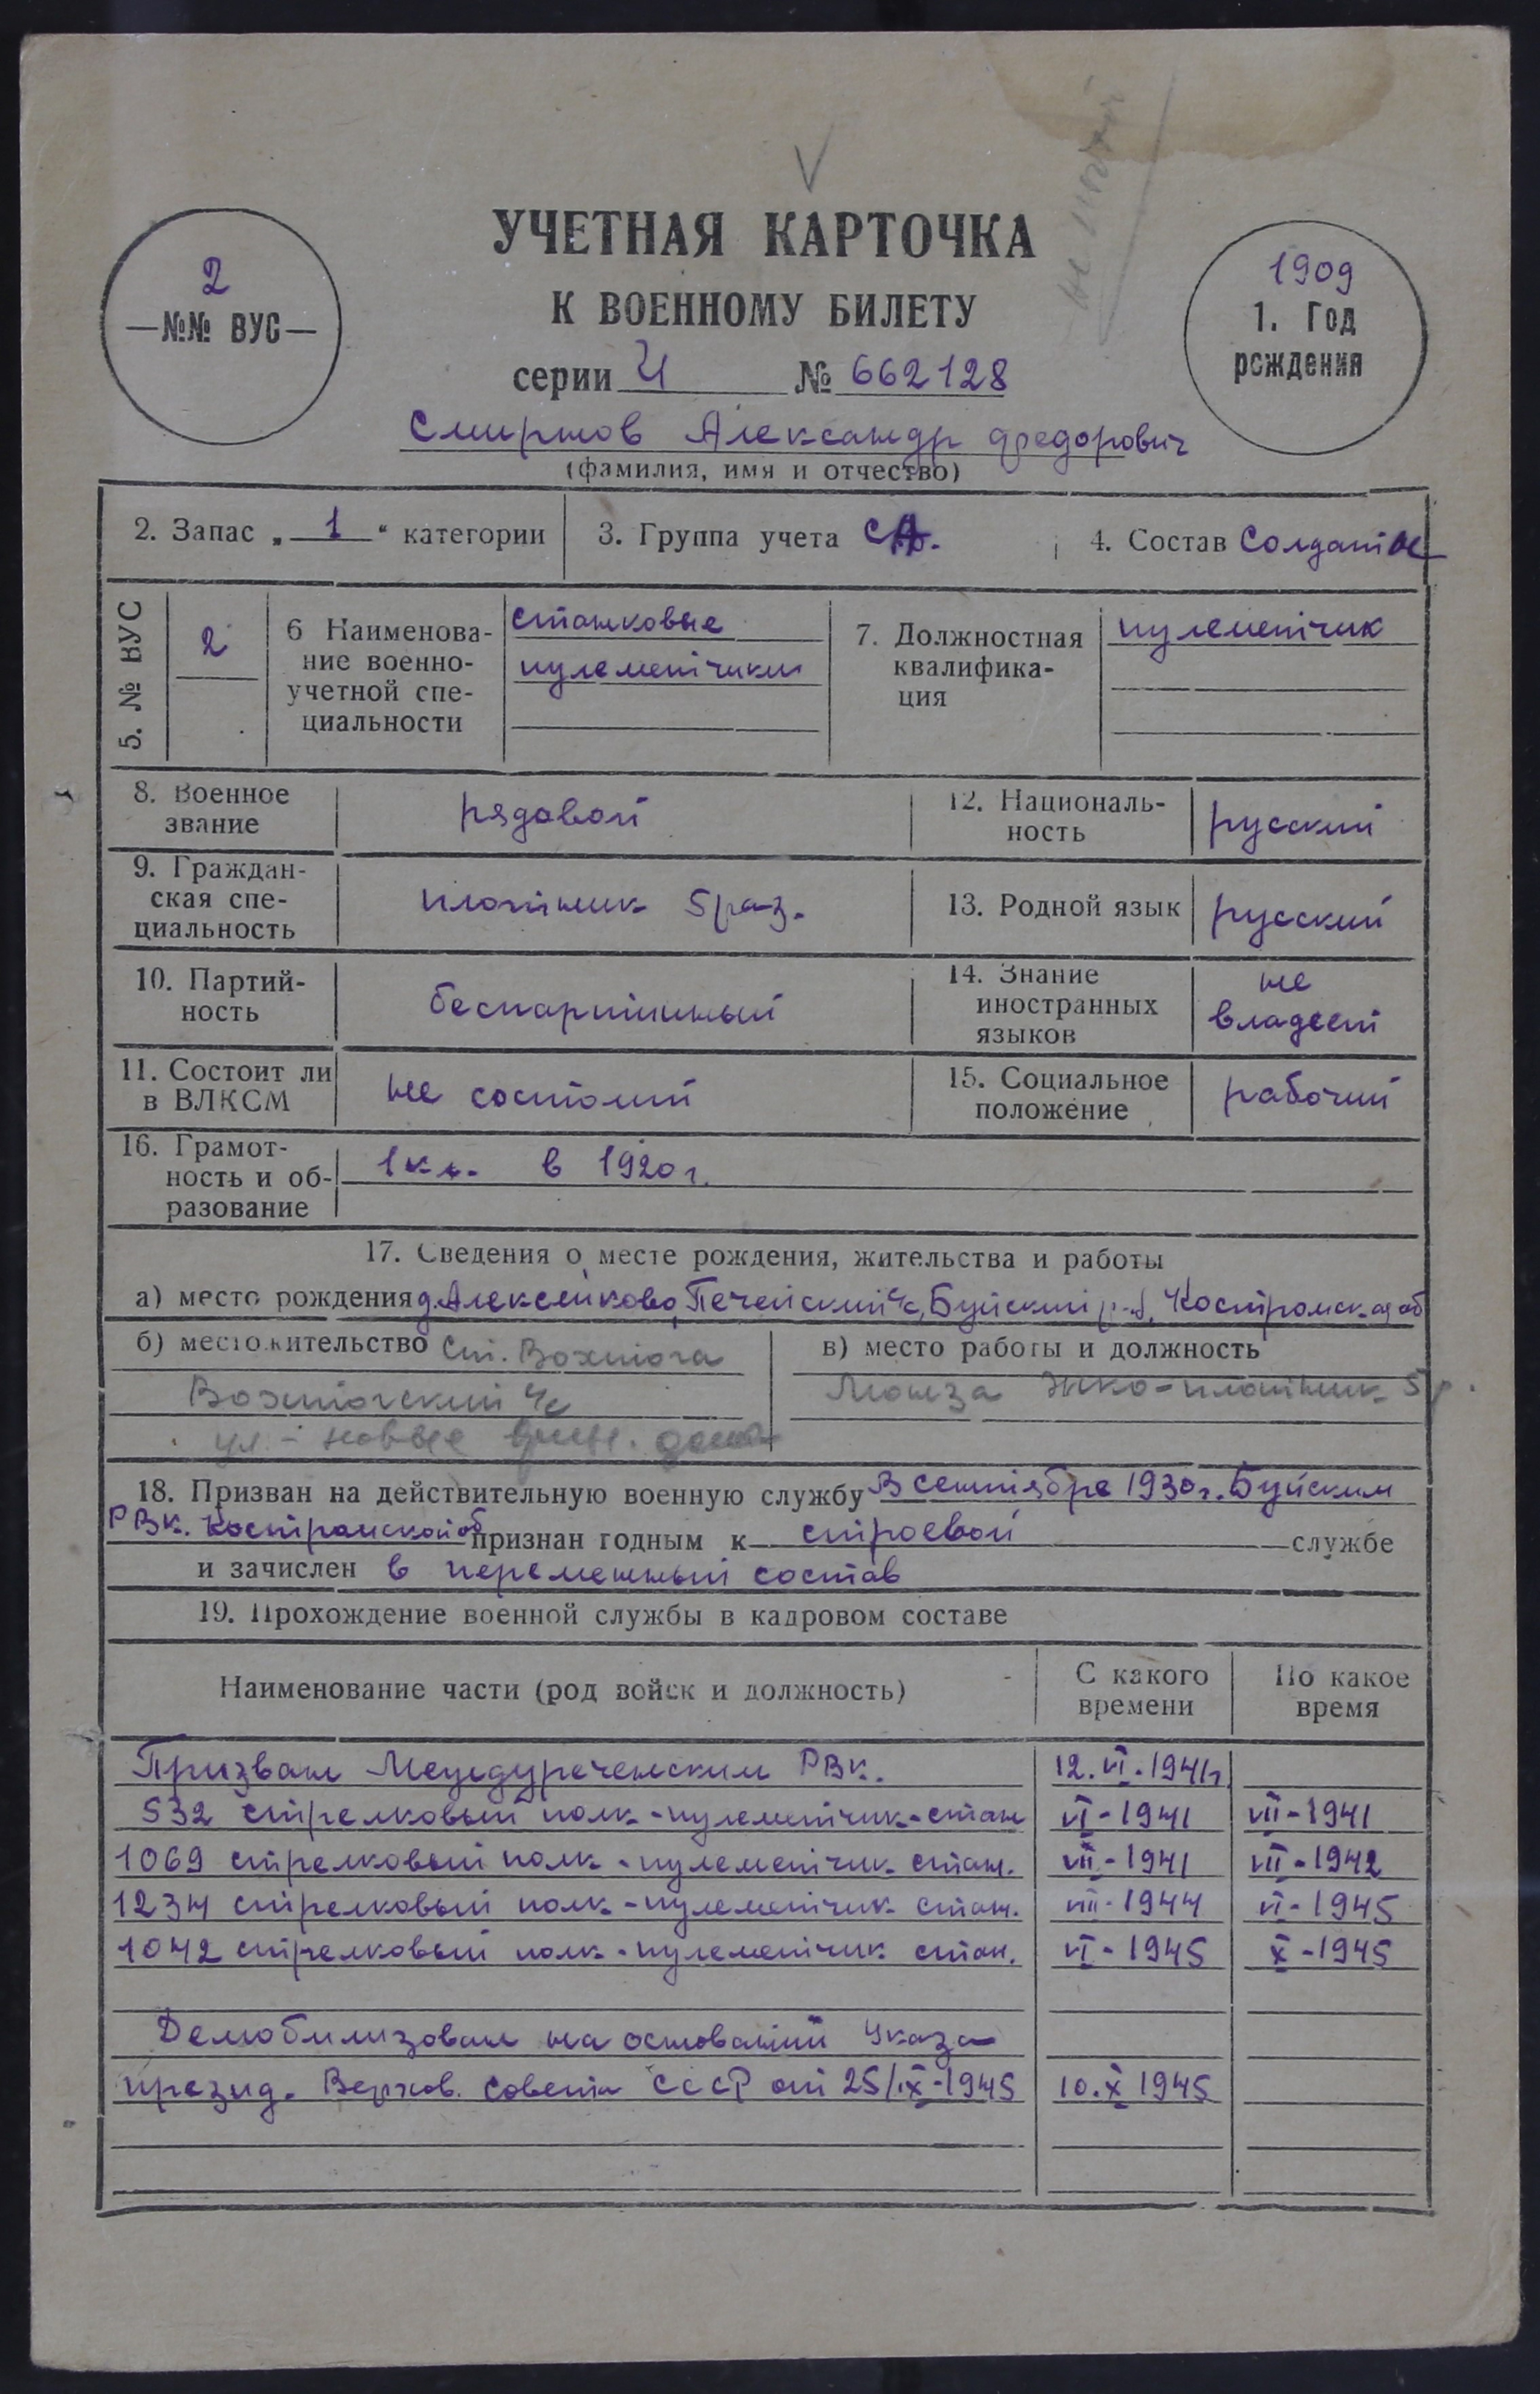 УЧЕТНАЯ КАРТОЧКА
К ВОЕННОМУ БИЛЕТУ
2
—№№ ВУС—
1909
1. Год
рождения
серии Ч № 662128
Смирнов Александр Федорович
(фамилия, имя и отчество)
2. Запас „ 1 “ категории
3. Группа учета СА.
4. Состав Солдатск
5. № ВУС
2
6 Наименова-
ние военно-
учетной спе-
циальности
станковые
пулеметчики
7. Должностная
квалифика-
ция
пулеметчик
8. Военное
звание
рядовой
12. Националь-
ность
русский
9. Граждан-
ская спе-
циальность
плотник 5 раз.
13. Родной язык
русский
10. Партий-
ность
беспартийный
14. Знание
иностранных
языков
не
владеет
11. Состоит ли
в ВЛКСМ
не состоит
15. Социальное
положение
рабочий
16. Грамот-
ность и об-
разование
1 кл. в 1920 г.
17. Сведения о месте рождения, жительства и работы
а) место рождения д. Алексейково, Печейский с/с, Буйский р-н, Костромская об
б) местожительство Ст. Вохтога
Вохтогский с/с
ул - новые дома
в) место работы и должность
Монза плотник 5 р.
18. Призван на действительную военную службу В сентябре 1930 г. Буйским
РВК. Костромской об признан годным к строевой службе
и зачислен в переменный состав
19. Прохождение военной службы в кадровом составе
Наименование части (род войск и должность)
С какого
времени
По какое
время
Призван Междуреченским РВК. 12.VI.1941г
532 стрелковый полк - пулеметчик - стан VI - 1941 VII - 1941
1069 стрелковый полк - пулеметчик стан. VII - 1941 VII - 1942
1234 стрелковый полк - пулеметчик стан. VIII - 1944 VI - 1945
1042 стрелковый полк - пулеметчик стан. VI - 1945 X - 1945
Демобилизован на основании Указа
презид. Верхов. Совета СССР от 25/IX-1945 10.X 1945